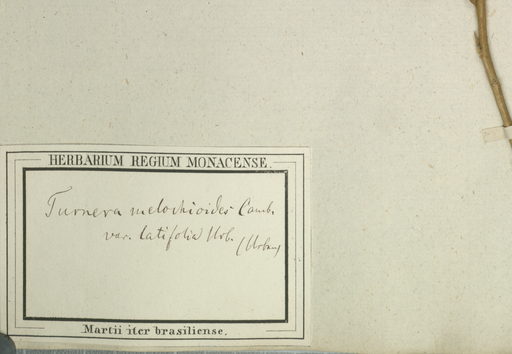 HERBARIUM REGIUM MONACENSE.
Turnera melochioides Camb.
var. latifolia Urb.
(Urban)
Martii iter brasiliense.